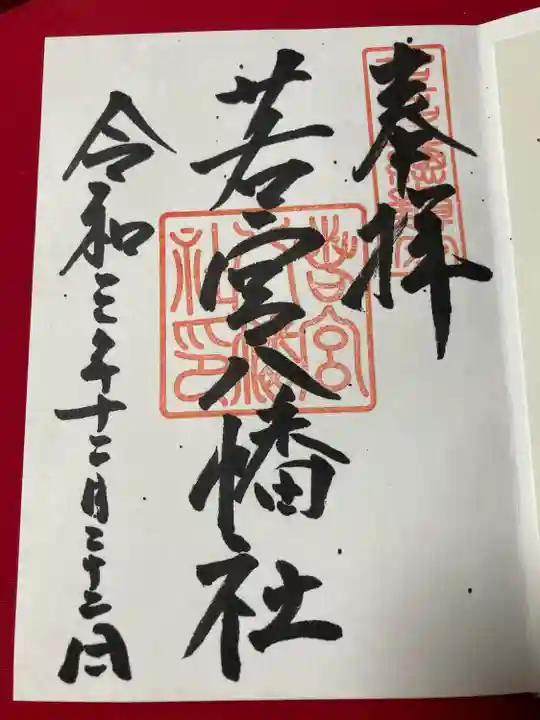 奉拝
若宮八幡社
令和三年十二月二十二日
若宮八幡社印